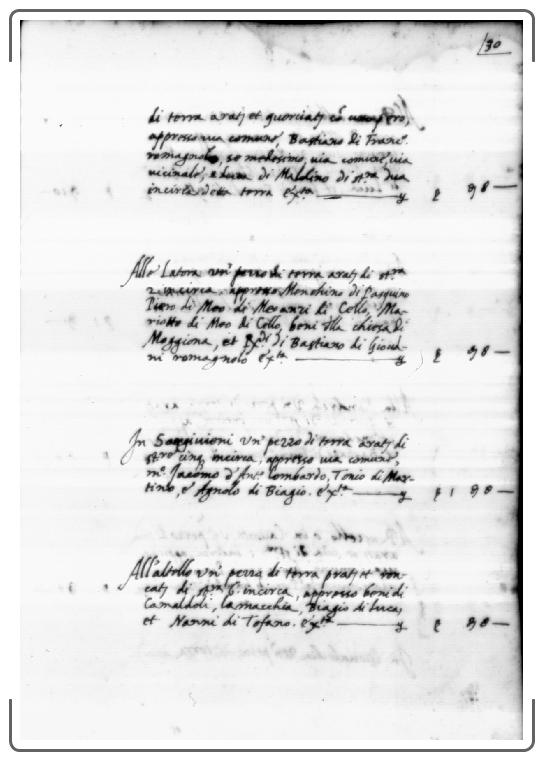 30
di terra arat et querciat cõ
appresso via comune, Bastiano di Franc.co
romagnolo, se medesimo, via comune, via
vicinale, e Luca di Maldino di st.ra dua
incirca detta terra &x.ta ——— 98 —
Alle Latora un pezzo di terra arat di st.ra
2 incirca, appresso Monchino di Pasquino
Piero di Meo di Cello, Ma-
riotto di Meo di Cello, beni della chiesa di
Moggiona, et Rx.di di Bastiano di Giova-
ni romagnolo &x.ta ——— 98 —
In un pezzo di terra arat di
st.ro cinq incirca, appresso via comune,
m.o Jacomo d'Ant.o Lombardo, Tonio di Mar-
tino, e Agnolo di Biagio. &x.ta ——— 1 98 —
All'altello un pezzo di terra prat et ron-
cat di st.ra 6 incirca, appresso beni di
Camaldoli, la macchia, Biagio di Luca,
et Nanni di Tofano. &x.ta ——— 98 —